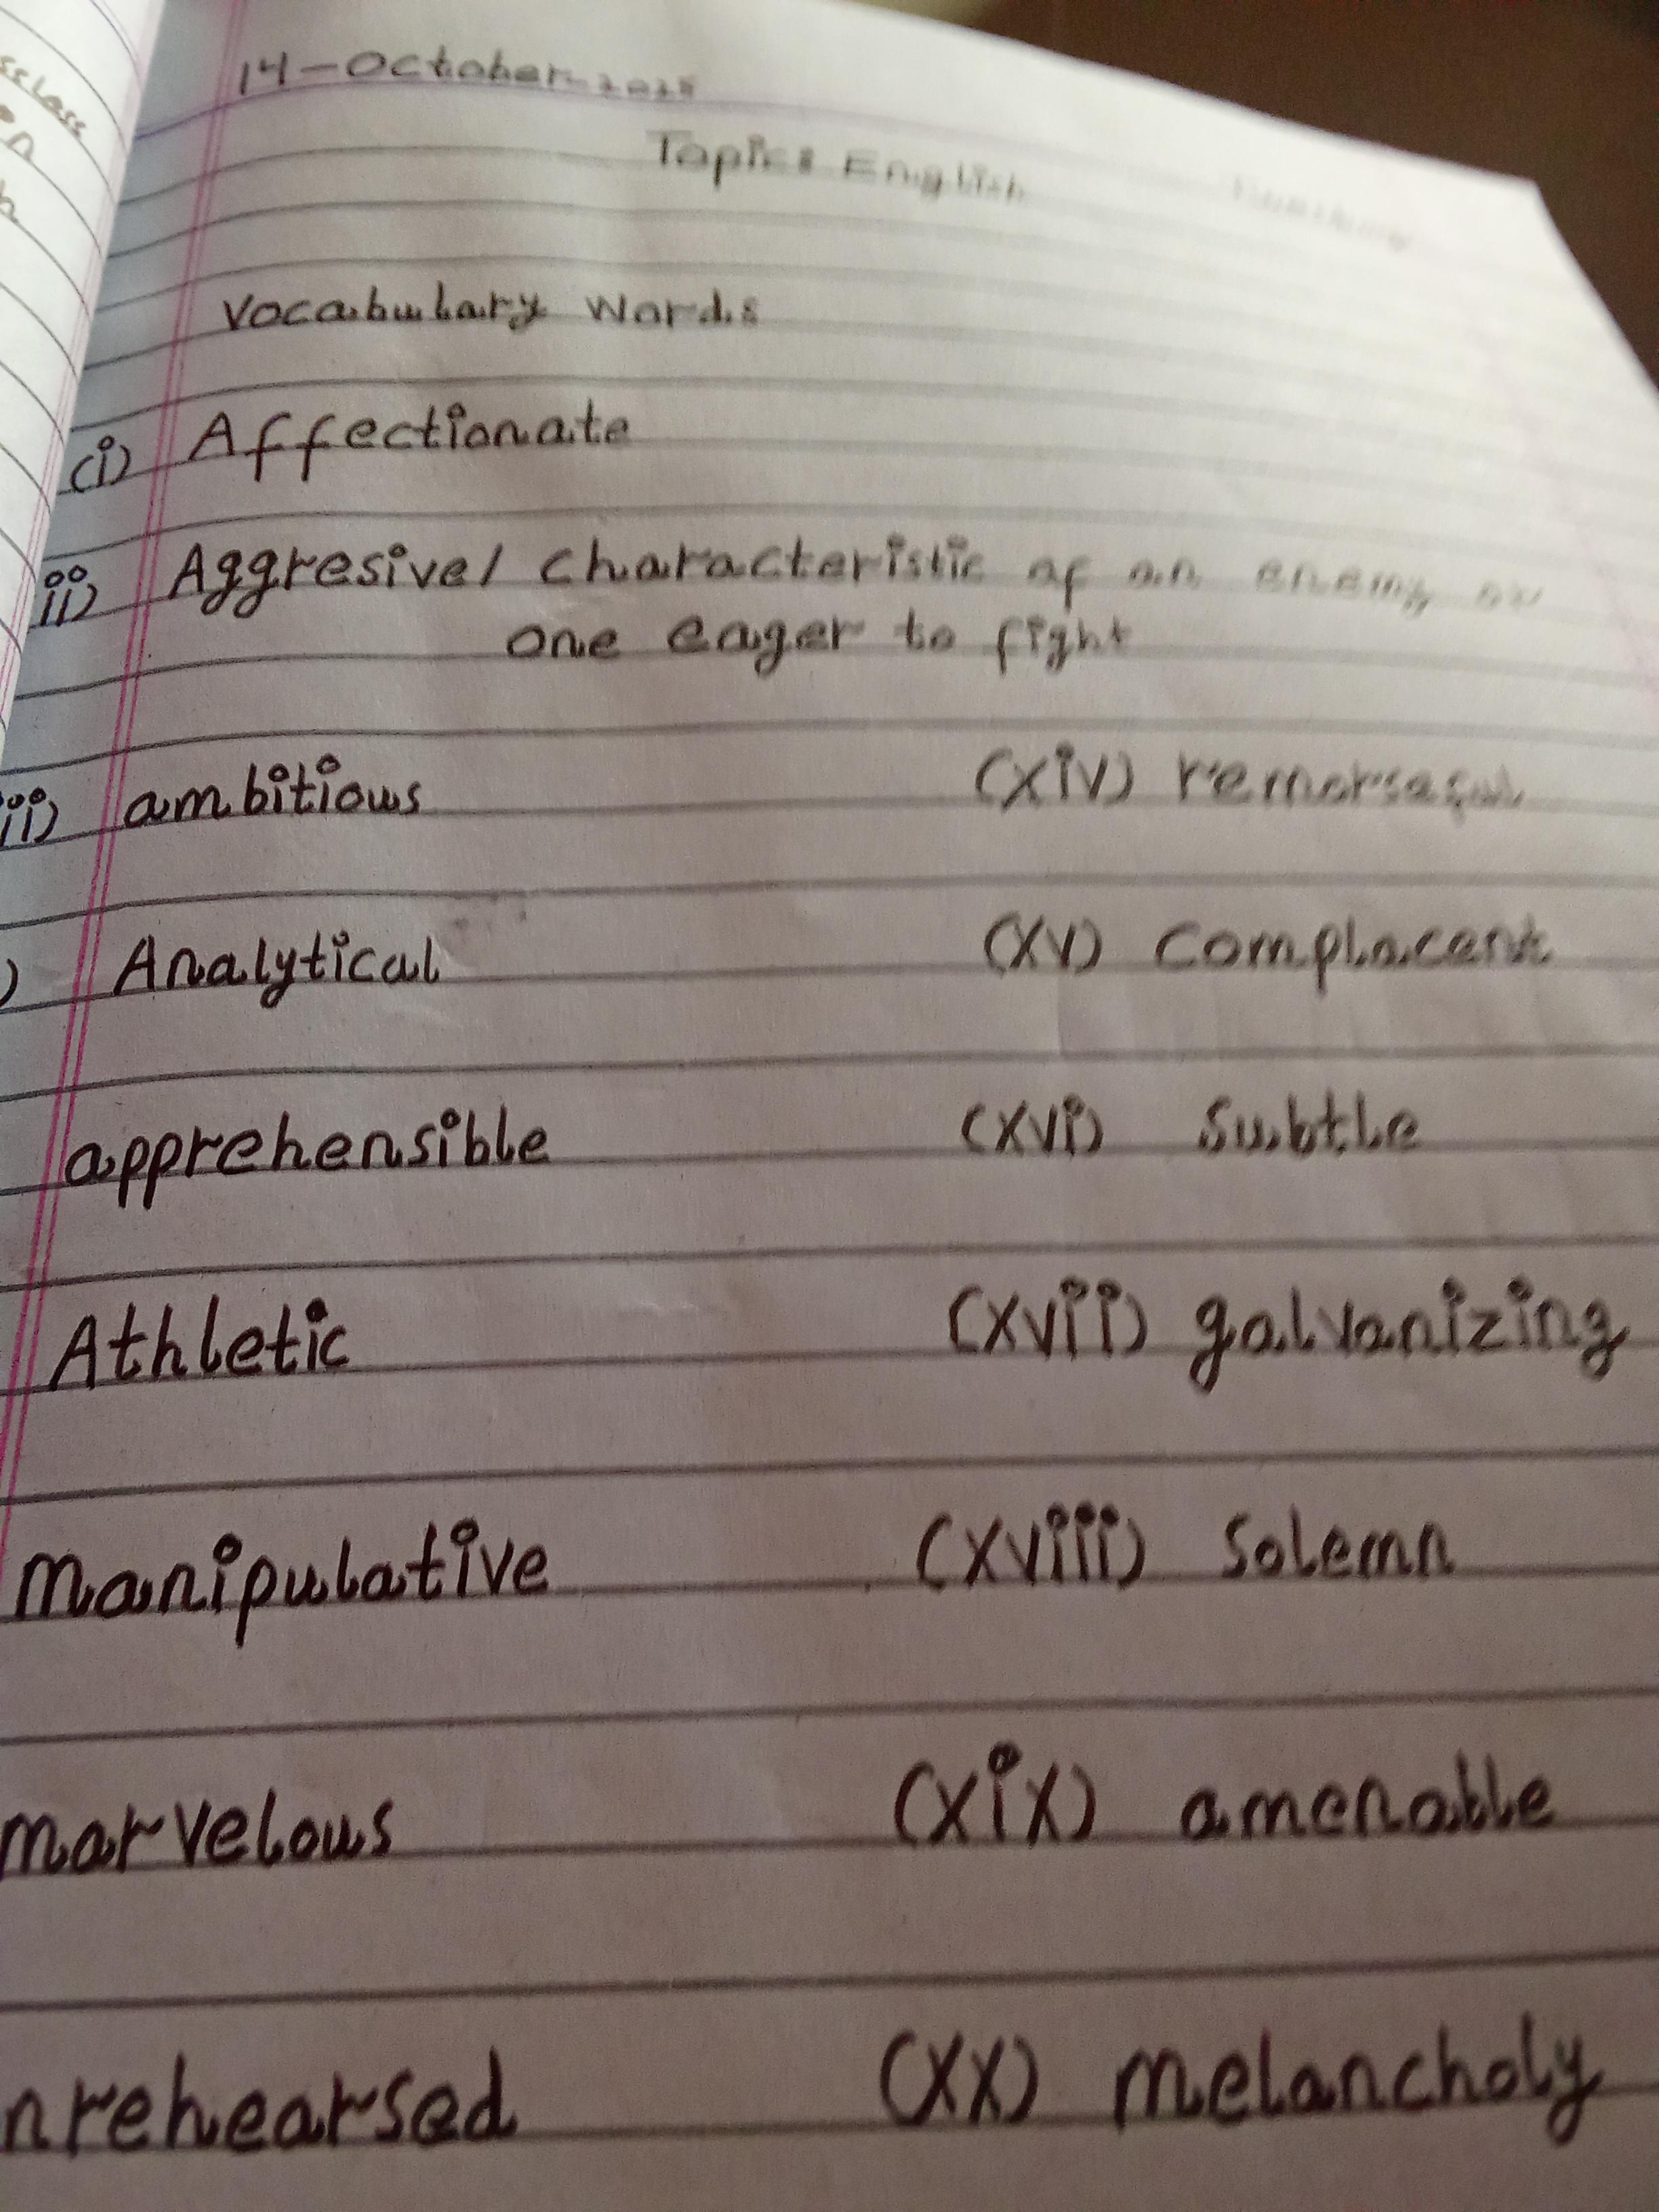 14-October-2025
Topic: English
Vocabulary Words
(i) Affectionate
ii) Aggresive/ characteristic of an enemy or
one eager to fight
iii) ambitious
(xiv) remorseful
) Analytical
(xv) complacent
apprehensible
(xvi) subtle
Athletic
(xvii) galvanizing
manipulative
(xviii) Solemn
marvelous
(xix) amenable
nrehearsed
(xx) melancholy